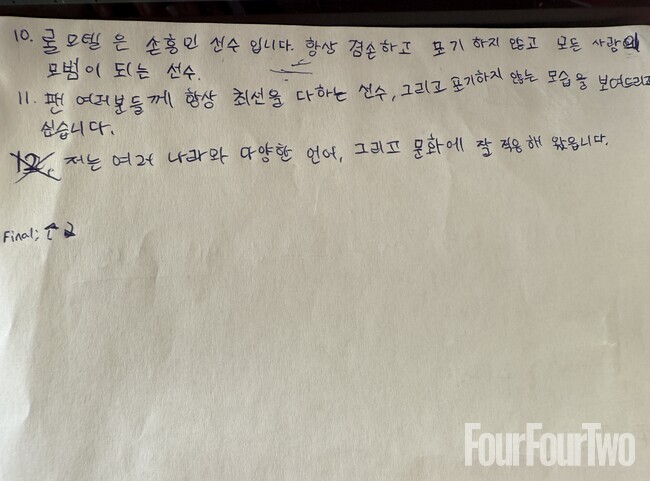 10. 롤 모델 은 손흥민 선수 입니다. 항상 겸손하고 포기 하지 않고 모든 사람의
모범이 되는 선수.
11. 팬 여러분들께 항상 최선을 다하는 선수, 그리고 포기하지 않는 모습을 보여드리고
싶습니다.
12. 저는 여러 나라와 다양한 언어, 그리고 문화에 잘 적응해 왔습니다.
Final;
FourFourTwo